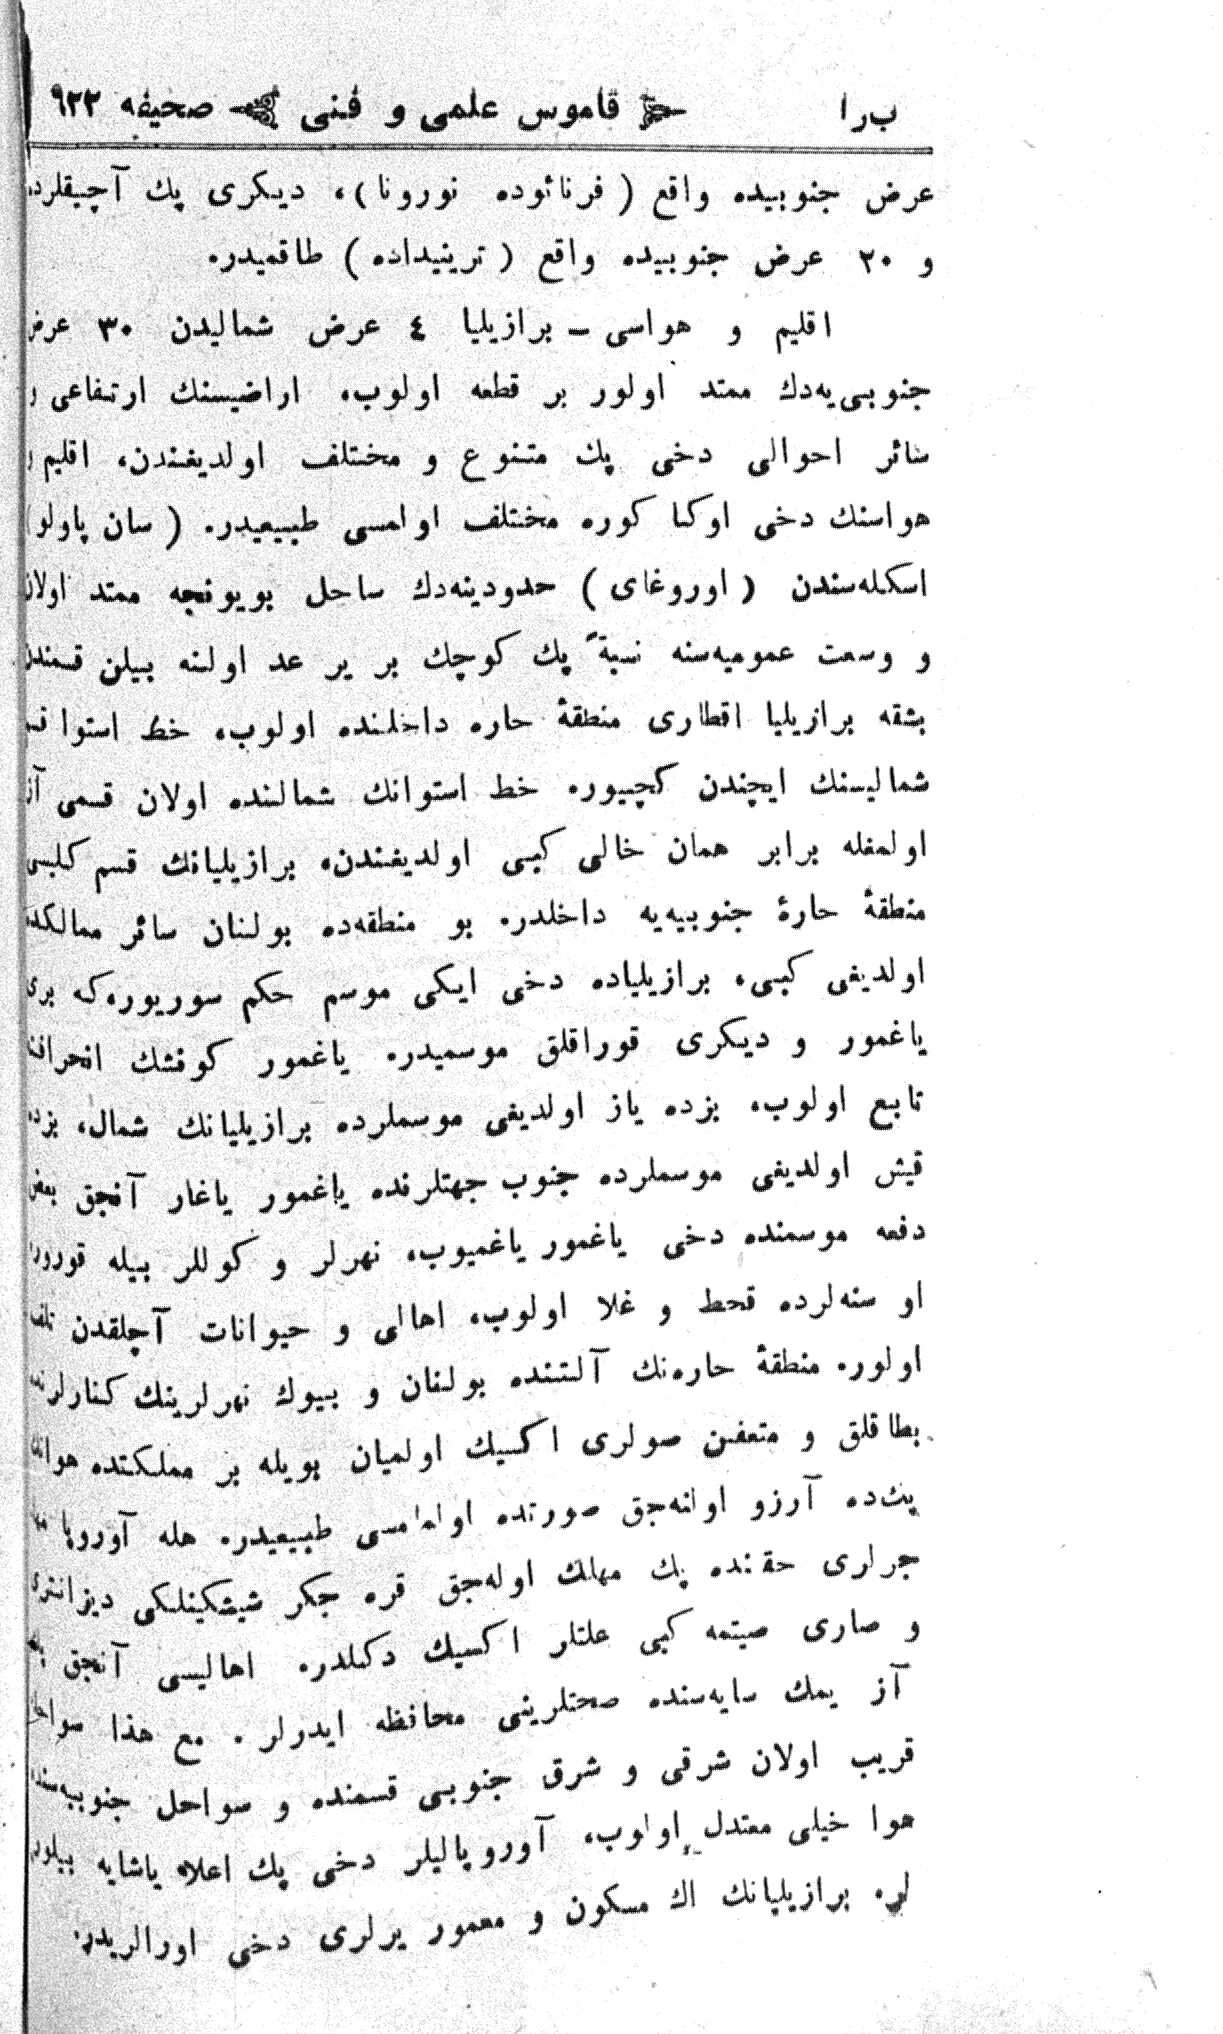 ب‌را قاموس علمی و فنی صحیفه ٩٢٢
عرض جنوبیده واقع (فرنائوده نورونا)، دیکری پك آچیقلرده
و ٢٠ عرض جنوبیده واقع (ترینیداده) طاقمیدر.
اقلیم و هواسی — برازیلیا ٤ عرض شمالیدن ٣٠ عرض
جنوبی‌یه‌دك ممتد اولور بر قطعه اولوب، اراضیسنك ارتفاعی و
سائر احوالی دخی پك متنوع و مختلف اولدیغندن، اقلیم و
هواسنك دخی اوکا کوره مختلف اولمسی طبیعیدر. (سان پاولو)
اسکله‌سندن (اوروغای) حدودینه‌دك ساحل بویونجه ممتد اولان
و وسعت عمومیه‌سنه نسبةً پك کوچك بر یر عد اولنه بیلن قسمندن
بشقه برازیلیا اقطاری منطقهٔ حاره داخلنده اولوب، خط استوا قسم
شمالیسنك ایچندن کچیور. خط استوانك شمالنده اولان قسمی آز
اولمغله برابر همان خالی کبی اولدیغندن، برازیلیانك قسم کلیسی
منطقهٔ حارهٔ جنوبیه‌یه داخلدر. بو منطقه‌ده بولنان سائر ممالکده
اولدیغی کبی، برازیلیاده دخی ایکی موسم حکم سوریور، که بری
یاغمور و دیکری قوراقلق موسمیدر. یاغمور کونشك انحرافنه
تابع اولوب، بزده یاز اولدیغی موسملرده برازیلیانك شمال، بزده
قیش اولدیغی موسملرده جنوب جهتلرنده یاغمور یاغار آنجق بعض
دفعه موسمنده دخی یاغمور یاغمیوب، نهرلر و کوللر بیله قورور.
او سنه‌لرده قحط و غلا اولوب، اهالی و حیوانات آچلقدن تلف
اولور. منطقهٔ حاره‌نك آلتنده بولنان و بیوك نهرلرینك کنارلرنده
بطاقلق و متعفن صولری اکسیك اولمیان بویله بر مملکتده هوانك
پك‌ده آرزو اولنه‌جق صورتده اولمامسی طبیعیدر. هله آوروپا مها
جرلری حقنده پك مهلك اوله‌جق قره جکر شیشکینلکی دیزانتری
و صاری صیتمه کبی علتلر اکسیك دکلدر. اهالیسی آنجق پك
آز یمك سایه‌سنده صحتلرینی محافظه ایدرلر. مع هذا سواحله
قریب اولان شرقی و شرق جنوبی قسمنده و سواحل جنوبیه‌سنده
هوا خیلی معتدل اولوب، آوروپالیلر دخی پك اعلا یاشایه بیلور
لر. برازیلیانك اك مسکون و معمور یرلری دخی اورالریدر.